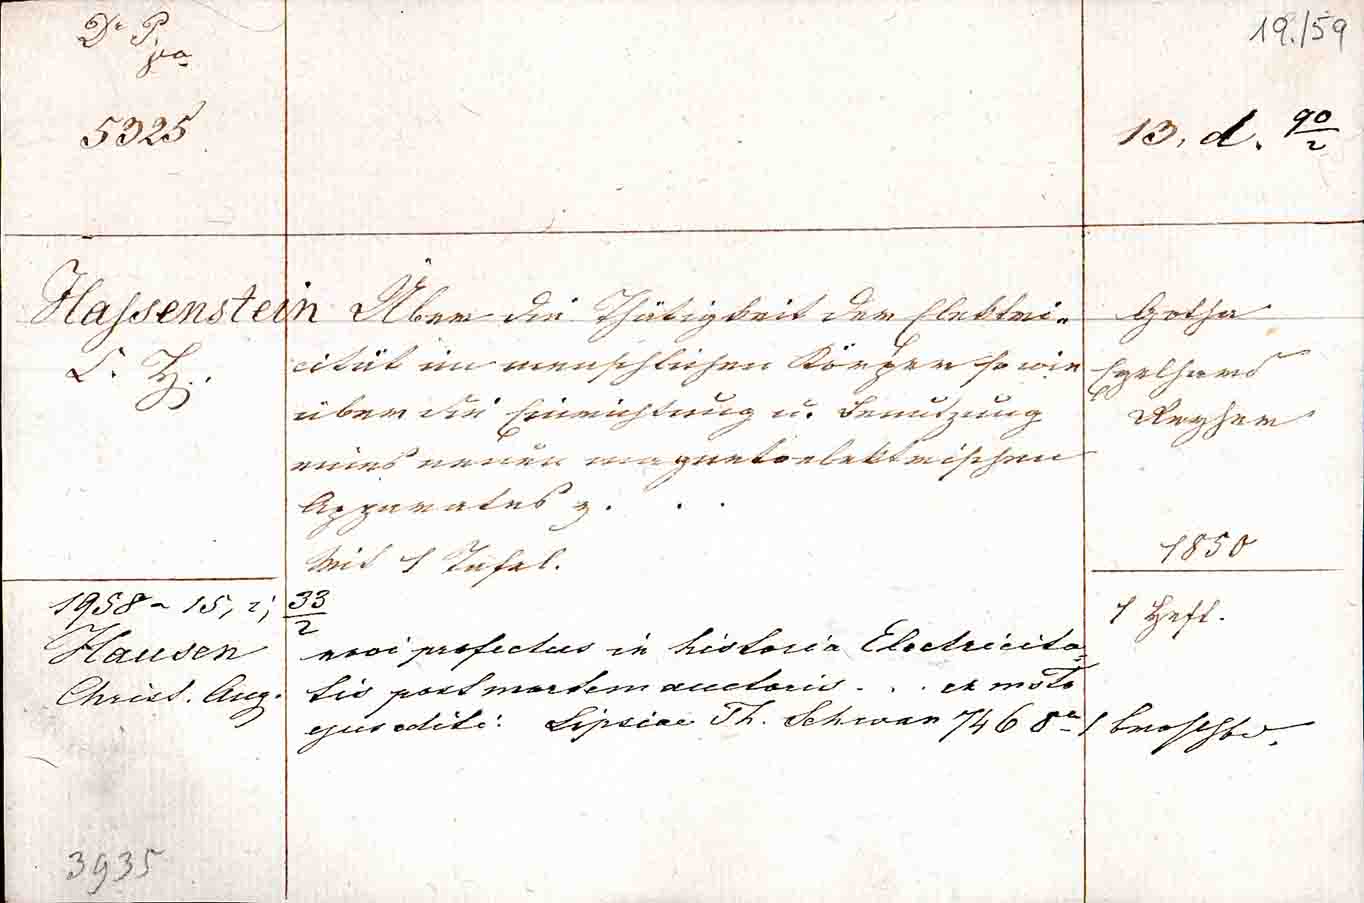 Dr P.
5325
19./59
13. d. 90/2
Hassenstein
C. H.
Über die Thätigkeit der Elektri-
cität im menschlichen Körper so wie
über die Einrichtung u. Benutzung
eines neuen magnetoelektrischen
Apparates
Mit 1 Tafel.
Gotha
Engelhard
Reyher
1850
1 Heft.
1958 - 15, 2; 33/2
Hausen
Christ. Aug.
novi profectus in historia Electricita-
tis post mortem auctoris . . . ex msto
ejus editi: Lipsiae Th. Schwan 746 8°
1 broschr.
3935